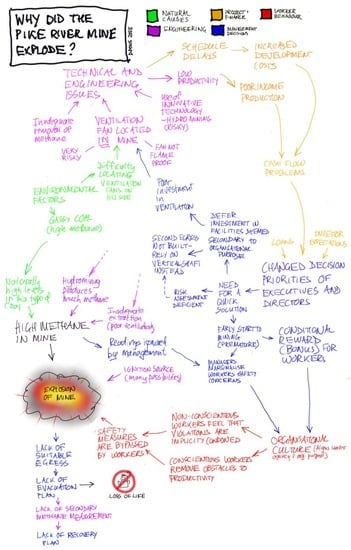 WHY DID THE
PIKE RIVER MINE
EXPLODE?
NATURAL
CAUSES
ENGINEERING
PROJECT
FINANCE
MANAGEMENT
DECISION
WORKER
BEHAVIOUR
SCHEDULE
DELAYS
INCREASED
DEVELOPMENT
COSTS
TECHNICAL AND
ENGINEERING
ISSUES
LOW
PRODUCTIVITY
POOR INCOME
PRODUCTION
use of
INNOVATIVE
TECHNOLOGY
- HYDRO MINING
(RISKY)
Inadequate
removal of
methane
VENTILATION
FAN LOCATED
IN MINE
VERY
RISKY
FAN NOT
FLAME
PROOF
CASH FLOW
PROBLEMS
Difficulty
LOCATING
VENTILATION
FANS ON
HILLSIDE
ENVIRONMENTAL
FACTORS
Poor
investment
in
VENTILATION
GASSY COAL
(high methane)
DEFER
INVESTMENT IN
FACILITIES DEEMED
SECONDARY TO
ORGANISATIONAL
PURPOSE
LOANS
INVESTOR
EXPECTATIONS
SECOND EGRESS
NOT BUILT -
RELY ON
VERTICAL SHAFT
INSTEAD
CHANGED DECISION
PRIORITIES OF
EXECUTIVES AND
DIRECTORS
Naturally
high levels
in this type of
coal
Hydromining
produces
much methane
RISK
ASSESSMENT
DEFICIENT
NEED
FOR A
QUICK
SOLUTION
Inadequate
extraction
(poor ventilation)
HIGH METHANE
IN MINE
EARLY START TO
MINING
(PREMATURE)
CONDITIONAL
REWARD
(BONUS) FOR
WORKERS
Readings ignored
by management
MANAGERS
MARGINALISE
WORKERS SAFETY
CONCERNS
IGNITION SOURCE
(many possibility)
EXPLOSION
OF MINE
NON-CONSCIENTIOUS
WORKERS FEEL THAT
VIOLATIONS ARE
IMPLICITLY CONDONED
SAFETY
MEASURES
ARE BYPASSED
BY WORKERS
ORGANISATIONAL
CULTURE
CONSCIENTIOUS WORKERS
REMOVE OBSTACLES TO
PRODUCTIVITY
LACK OF
SUITABLE
EGRESS
LACK OF
EVACUATION
PLAN
LOSS OF LIFE
LACK OF SECONDARY
METHANE MEASUREMENT
LACK OF RECOVERY
PLAN